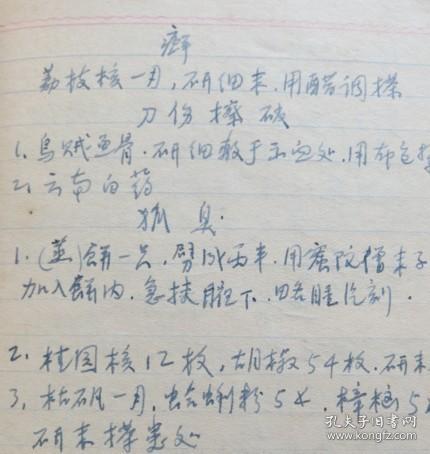 癣
荔枝核一月,研细末.用醋调搽
刀伤擦破
1. 乌贼鱼骨.研细敷于出血处.用布包
2. 云南白药
狐臭.
1. (蒸)饼一只,劈为两半.用密陀僧末子
加入饼内.急挟腋下.略睡片刻.
2. 桂圆核12枚,胡椒54枚.研末
3. 枯矾一月,蛤蜊粉5分.樟脑5
研末搽患处
孔夫子旧书网
www.kongfz.com